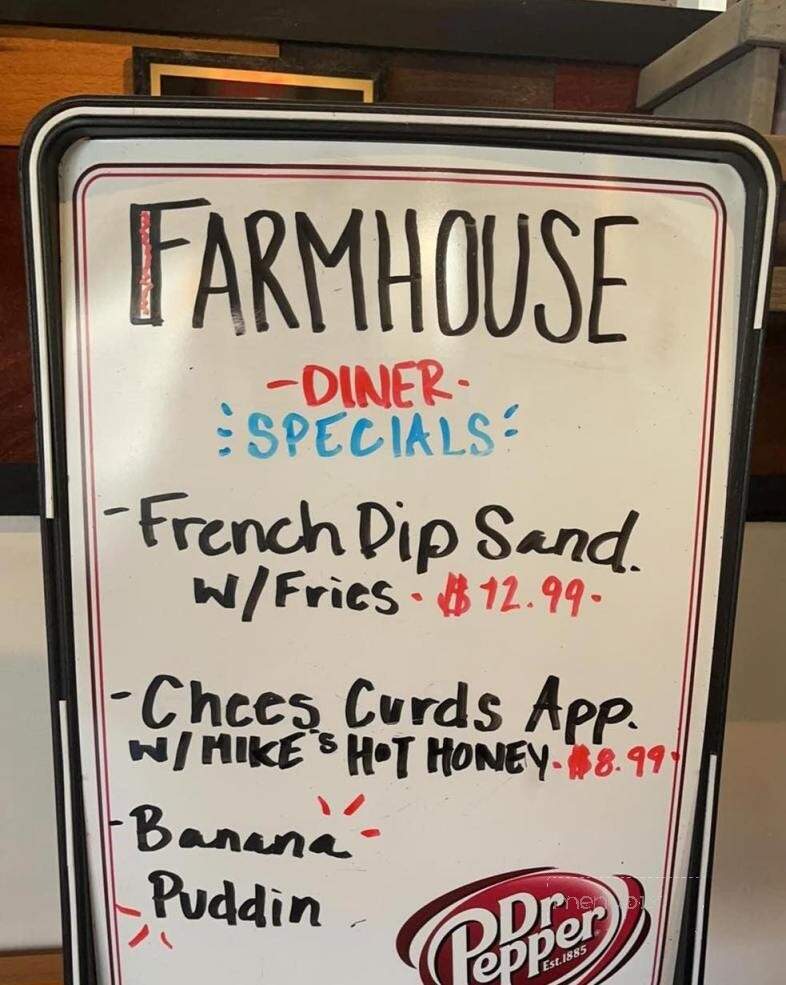 FARMHOUSE
-DINER-
SPECIALS
-French Dip Sand.
W/Fries - $12.99-
-Chees Curds App.
W/MIKE'S HOT HONEY - $8.99
-Banana
Puddin
Dr
Pepper
Est.1885